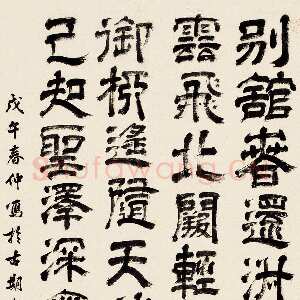 別館春還淑
雲飛北闕輕
御柳遙隨天
已知聖澤深無
戊午春仲寫於古期